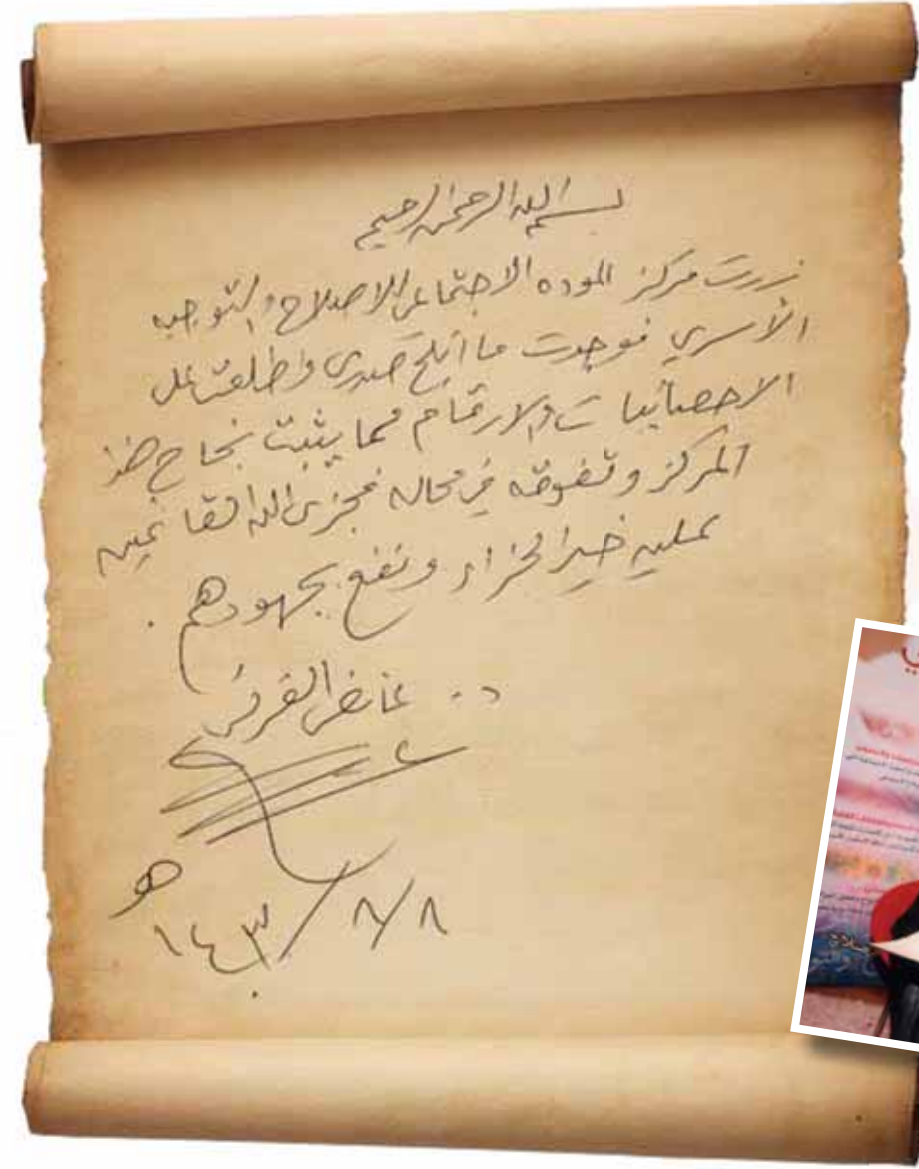 بسم الله الرحمن الرحيم
زرت مركز الموده الاجتماعي للاصلاح والتوجيه
الأسري فوجدت ما أثلج صدري واطلعت على
الاحصائيات والارقام مما يثبت نجاح هذا
المركز وتفوقه في مجاله فجزى الله القائمين
عليه خير الجزاء ونفع بجهودهم .
د. عائض القرني
٨/٨/١٤٣٠ هـ